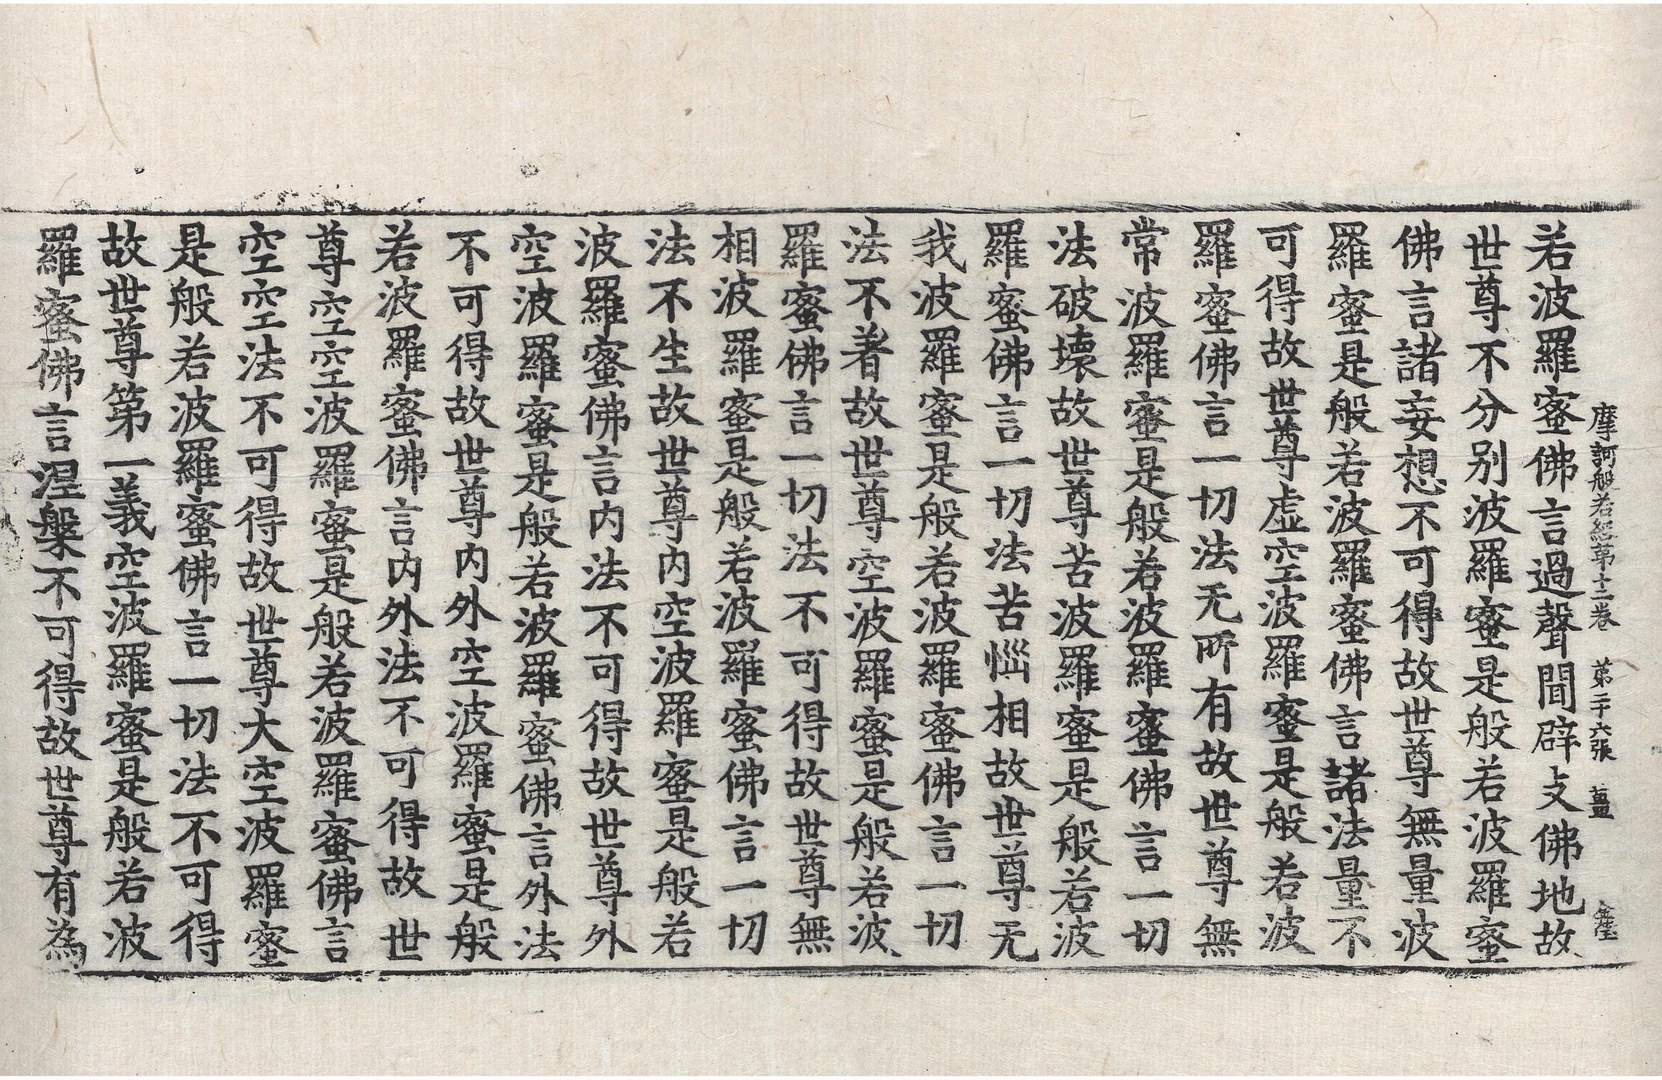 摩訶般若經第十二卷 第二十六張 薑
若波羅蜜佛言過聲聞辟支佛地故
世尊不分別波羅蜜是般若波羅蜜
佛言諸妄想不可得故世尊無量波
羅蜜是般若波羅蜜佛言諸法量不
可得故世尊虛空波羅蜜是般若波
羅蜜佛言一切法无所有故世尊無
常波羅蜜是般若波羅蜜佛言一切
法破壞故世尊苦波羅蜜是般若波
羅蜜佛言一切法苦惱相故世尊无
我波羅蜜是般若波羅蜜佛言一切
法不著故世尊空波羅蜜是般若波
羅蜜佛言一切法不可得故世尊無
相波羅蜜是般若波羅蜜佛言一切
法不生故世尊内空波羅蜜是般若
波羅蜜佛言内法不可得故世尊外
空波羅蜜是般若波羅蜜佛言外法
不可得故世尊内外空波羅蜜是般
若波羅蜜佛言内外法不可得故世
尊空空波羅蜜是般若波羅蜜佛言
空空法不可得故世尊大空波羅蜜
是般若波羅蜜佛言一切法不可得
故世尊第一義空波羅蜜是般若波
羅蜜佛言涅槃不可得故世尊有為